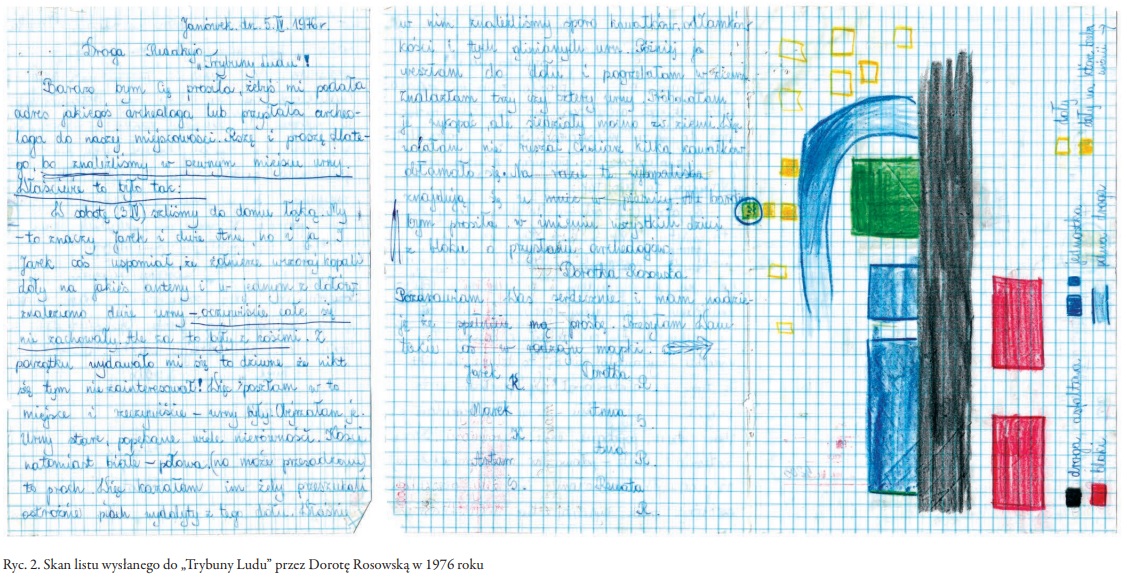 Janówek, dn. 5.IV. 1976r.
Droga Redakcjo
„Trybuny Ludu"!
Bardzo bym Cię prosiła, żebyś mi podała
adres jakiegoś archeologa lub przysłała archeo-
loga do naszej miejscowości. Piszę i proszę dlate-
go bo znaleźliśmy w pewnym miejscu urny.
Właściwie to było tak:
W sobotę (3.IV) szliśmy do domu łąką. My
- to znaczy Jarek i dwie Anie, no i ja. I
Jarek coś wspomniał, że żołnierze wczoraj kopali
doły na jakieś anteny i w jednym z dołów
znaleziono dwie urny - oczywiście całe się
nie zachowały. Ale za to były z kośćmi. Z
początku wydawało mi się to dziwne że nikt
się tym nie zainteresował! Więc poszłam w to
miejsce i rzeczywiście - urny były. Obejrzałam je.
Urny stare, popękane wiele nierówności. Kości
natomiast białe - połowa (no może przesadzam)
to proch. Więc kazałam im żeby przeszukali
ostrożnie piach wydobyty z tego dołu. Właśnie
w nim znaleźliśmy sporo kawałków, odłamków
kości i tych glinianych urn. Później ja
weszłam do dołu i pogrzebałam w ziemi.
Znalazłam trzy czy cztery urny. Próbowałam
je wyciągać, ale siedziały mocno w ziemi. Więc
wolałam nie ruszać. Chociaż kilka kawałków
obłamało się. Na razie te wykopaliska
znajdują się u mnie w piwnicy. Ale bardzo
bym prosiła w imieniu wszystkich dzieci
z bloku o przysłanie archeologów.
Dorotka Rosowska.
Pozdrawiam Was serdecznie i mam nadzie-
ję że spełnicie mą prośbę. Przesyłam Wam
takie coś w rodzaju mapki.
Jarek K. Dorotka R.
Marek K. Anna S.
Artur S. Ania R.
Renata R.
droga asfaltowa
bloki
jednostka
polna droga
doły
doły w których były urny
Ryc. 2. Skan listu wysłanego do „Trybuny Ludu” przez Dorotę Rosowską w 1976 roku